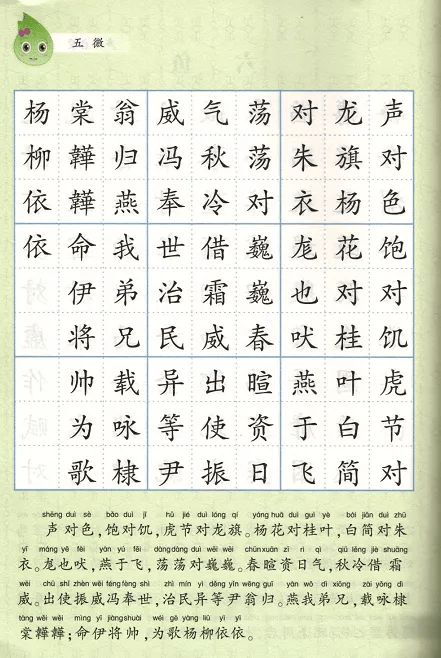 五 微
声对色饱对饥虎节对
龙旗杨花对桂叶白简
对朱衣尨也吠燕于飞
荡荡对巍巍春暄资日
气秋冷借霜威出使振
威冯奉世治民异等尹
翁归燕我弟兄载咏棣
棠韡韡命伊将帅为歌
杨柳依依
shēng duì sè bǎo duì jī hǔ jié duì lóng qí yáng huā duì guì yè bái jiǎn duì zhū
声对色,饱对饥,虎节对龙旗。杨花对桂叶,白简对朱
yī máng yě fèi yàn yú fēi dàng dàng duì wēi wēi chūn xuān zī rì qì qiū lěng jiè shuāng
衣。尨也吠,燕于飞,荡荡对巍巍。春暄资日气,秋冷借霜
wēi chū shǐ zhèn wēi féng fèng shì zhì mín yì děng yǐn wēng guī yàn wǒ dì xiōng zài yǒng dì
威。出使振威冯奉世,治民异等尹翁归。燕我弟兄,载咏棣
táng wěi wěi mìng yī jiàng shuài wéi gē yáng liǔ yī yī
棠韡韡;命伊将帅,为歌杨柳依依。